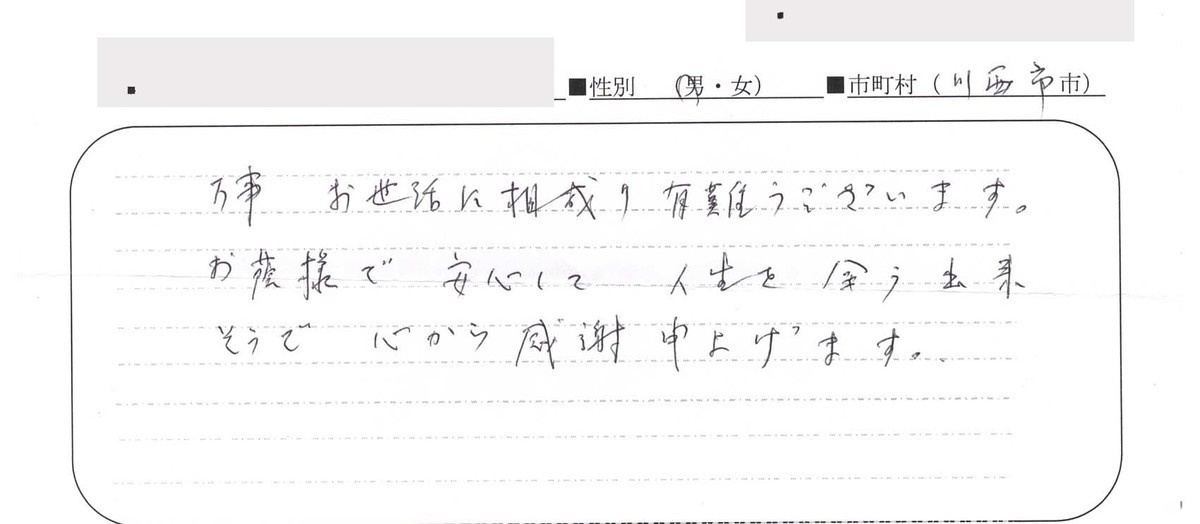 ■性別 (男・女) ■市町村 (川西市市)
万事 お世話に相成り有難うございます。
お蔭様で 安心して 人生を 全う出来
そうで 心から 感謝申上げます。